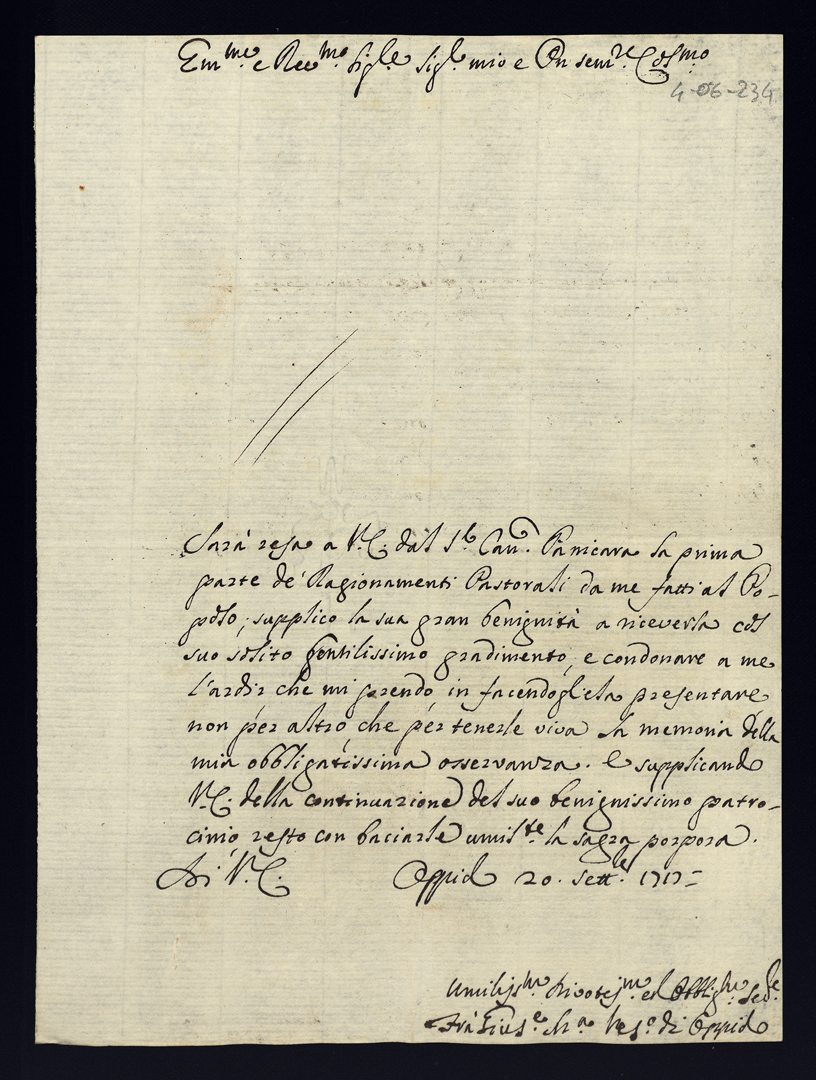 Em.me e Reu.mo Sig.re Sig.r mio e Pn sem.re Col.mo
4-06-234
Sarà resa a V.E. dal S.r Cau. Panicara la prima
parte de' Ragionamenti Pastorali da me fatti al Po-
polo; supplico la sua gran benignità a riceverla col
suo solito gentilissimo gradimento, e condonare a me
l'ardir che mi prendo in facendogliela presentare
non per altro, che per tenerle viva la memoria della
mia obbligatissima osservanza. E supplicando
V.E. della continuazione del suo benignissimo patro-
cinio, resto con baciarle umil.te la sagra porpora.
Di V.E. Oppido 20. Sett.e 1717=
Umiliss.mo Divotiss.mo ed Obblig.mo Ser.re
Frà Gius.e M.a Ves.o di Oppido